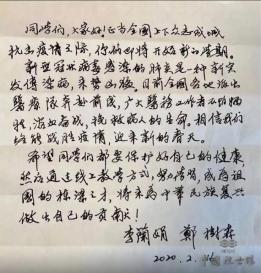 同学们，大家好！正当全国上下众志成城
抗击疫情之际，你们即将开始新的学期。
新型冠状病毒感染的肺炎是一种新突
发传染病，来势凶猛。目前全国各地派出
医疗队奔赴前线，广大医务工作者不怕牺
牲，浴血奋战，挽救病人的生命。相信我们
一定能战胜疫情，迎来新的春天。
希望同学们都要保护好自己的健康，
然后通过线上教学方式，努力学习，成为祖
国的栋梁之才，将来为中华民族复兴
做出自己的贡献！
李兰娟 郑树森
2020.2.
中国院士